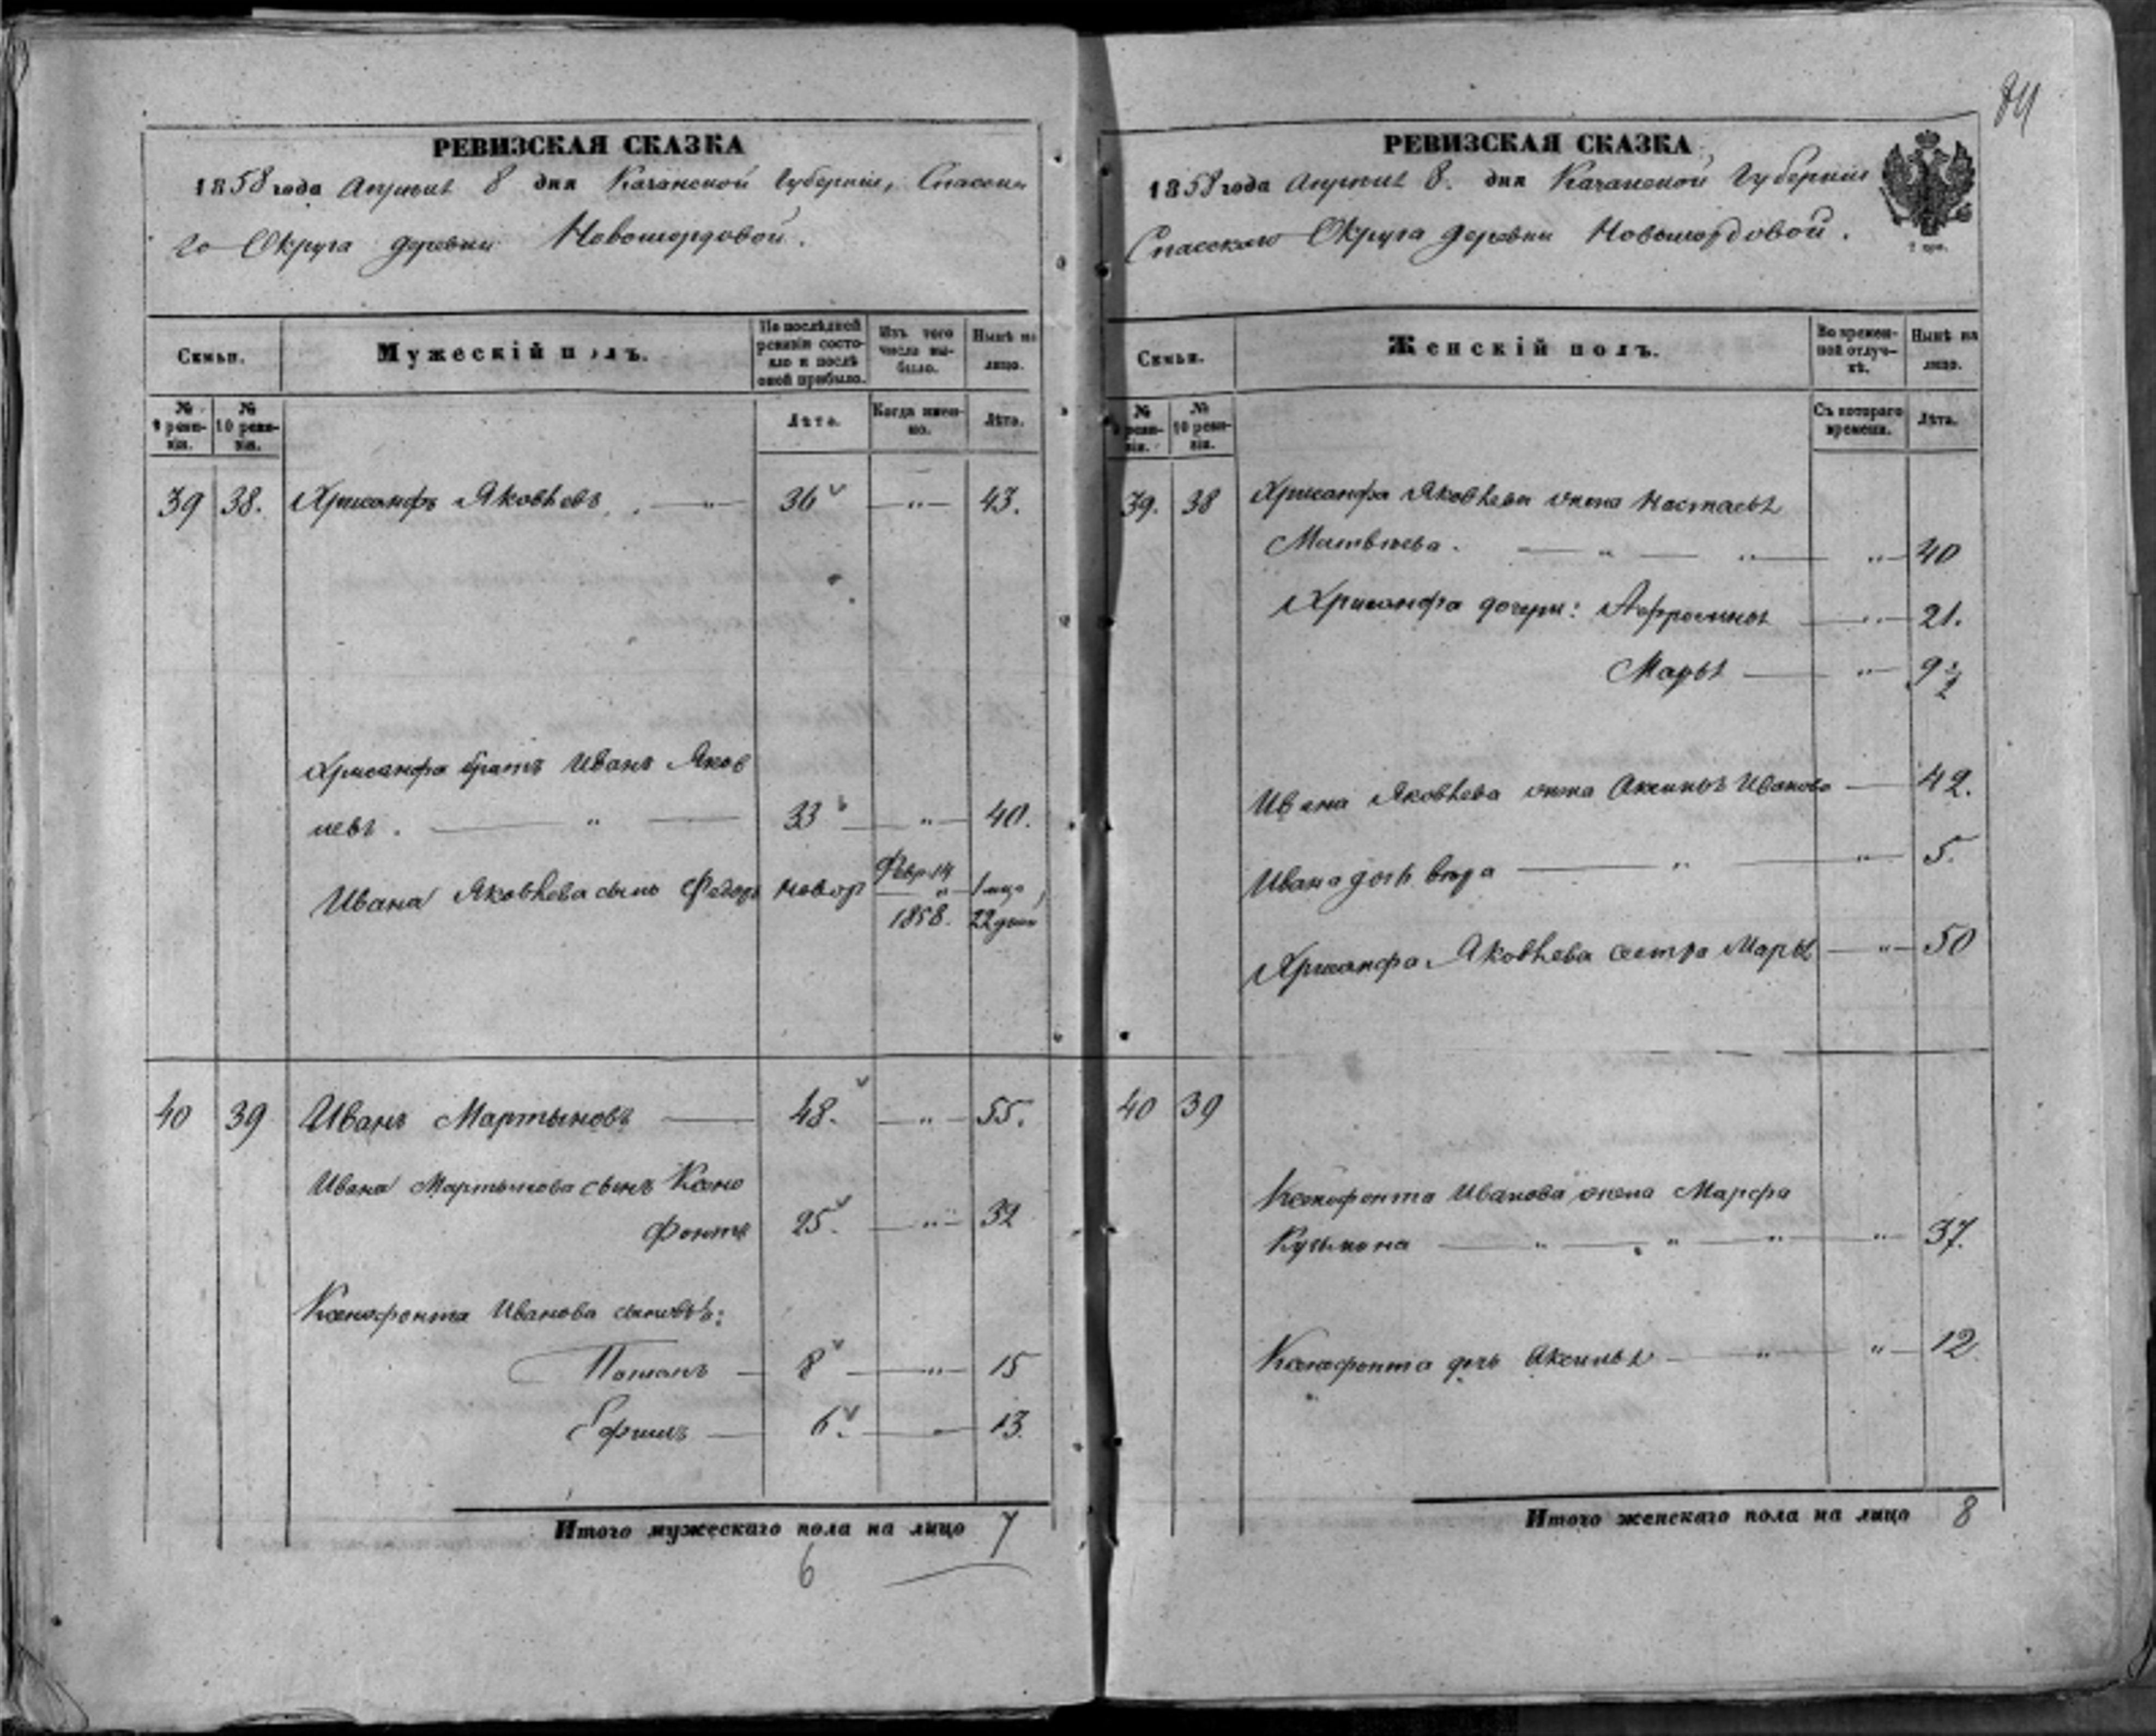 84
РЕВИЗСКАЯ СКАЗКА
1858 года Апрѣля 8 дня Казанской Губерніи, Спасска
го Округа деревни Новомордовой.
Семьи.
Мужескій полъ.
По послѣдней ревизіи состояло и послѣ оной прибыло.
Изъ того числа выбыло.
Нынѣ на лицо.
№ 9 ревизіи.
№ 10 ревизіи.
Лѣта.
Когда именно.
Лѣта.
39 38. Хрисанфъ Яковлевъ. — " — 36 — " — 43.
Хрисанфа братъ Иванъ Яков
левъ. — " — 33 — " — 40.
Ивана Яковлева сынъ Федоръ новор Февр. 14 1858. 1 мца, 22 дней
40 39 Иванъ Мартыновъ — 48. — " — 55.
Ивана Мартынова сынъ Ксено
фонтъ 25. — " — 32
Ксенофонта Иванова сыновья:
8 — " — 15
Ефимъ — 6. — " — 13.
Итого мужескаго пола на лицо 7
6
РЕВИЗСКАЯ СКАЗКА
1858 года Апрѣля 8. дня Казанской Губерніи
Спасскаго Округа деревни Новомордовой.
2 сор.
Семьи.
Женскій полъ.
Во временной отлучкѣ.
Нынѣ на лицо.
№ 9 ревизіи.
№ 10 ревизіи.
Съ котораго времени.
Лѣта.
39. 38 Хрисанфа Яковлева жена Настасья
Матвѣева. — " — " — " — 40
Хрисанфа дочери: — " — 21.
Марья — " — 9 1/2
Ивана Яковлева жена Аксинья Иванова — 42.
Ивана дочь — " — " — 5.
Хрисанфа Яковлева сестра Марья — " — 50
40 39
Ксенофонта Иванова жена Марфа
Кузьмина — " — " — " — " — 37.
Ксенофонта дочь Аксинья — " — " — 12.
Итого женскаго пола на лицо 8